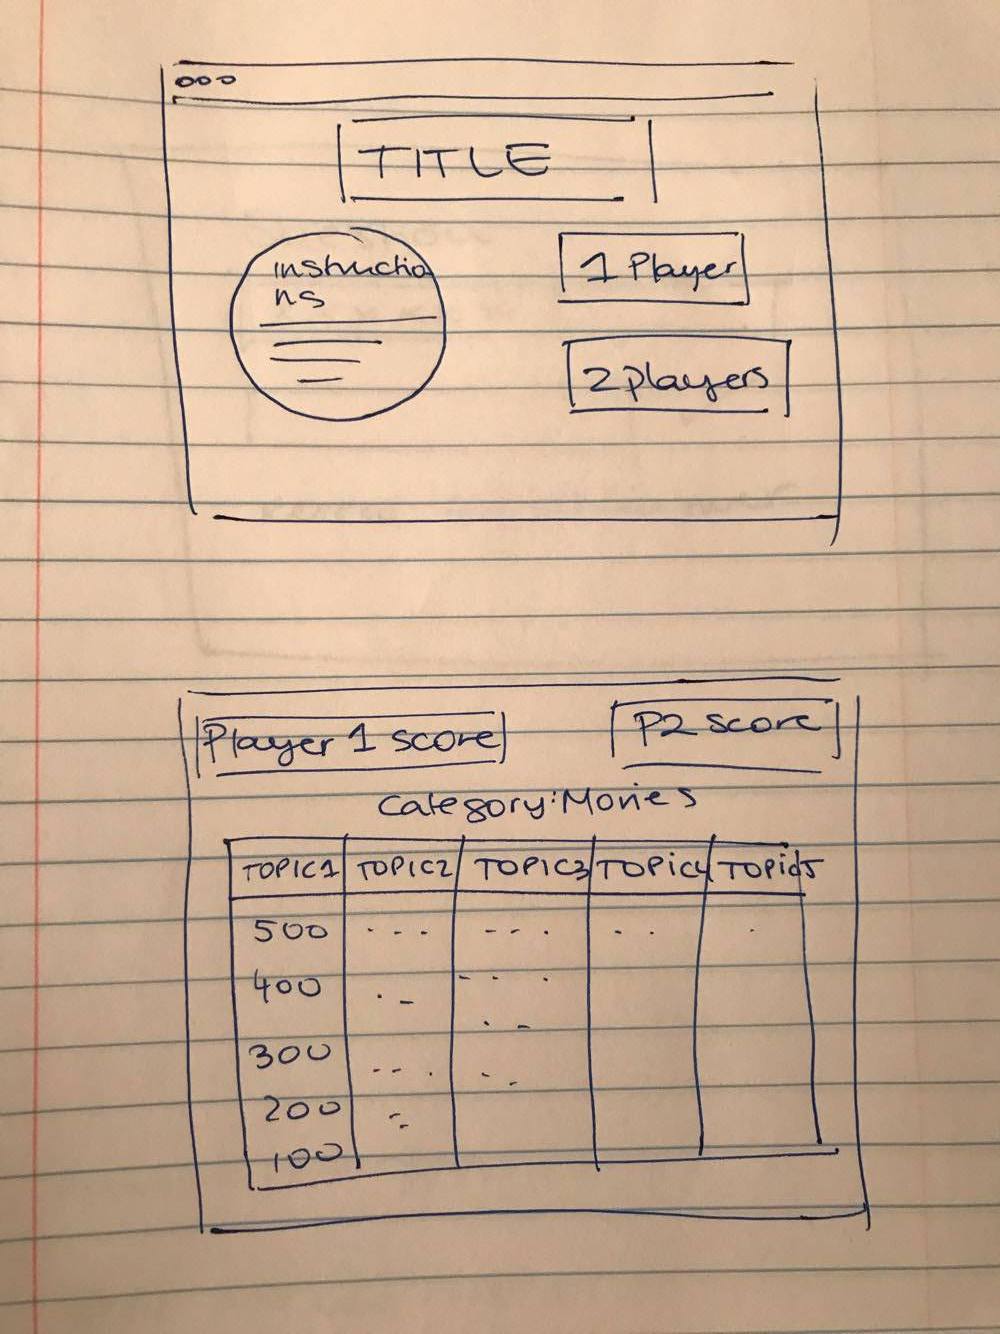 TITLE
instructio
ns
1 Player
2 players
Player 1 score
P2 score
Category: Movies
TOPIC1 TOPIC2 TOPIC3 TOPIC4 TOPIC5
500
400
300
200
100